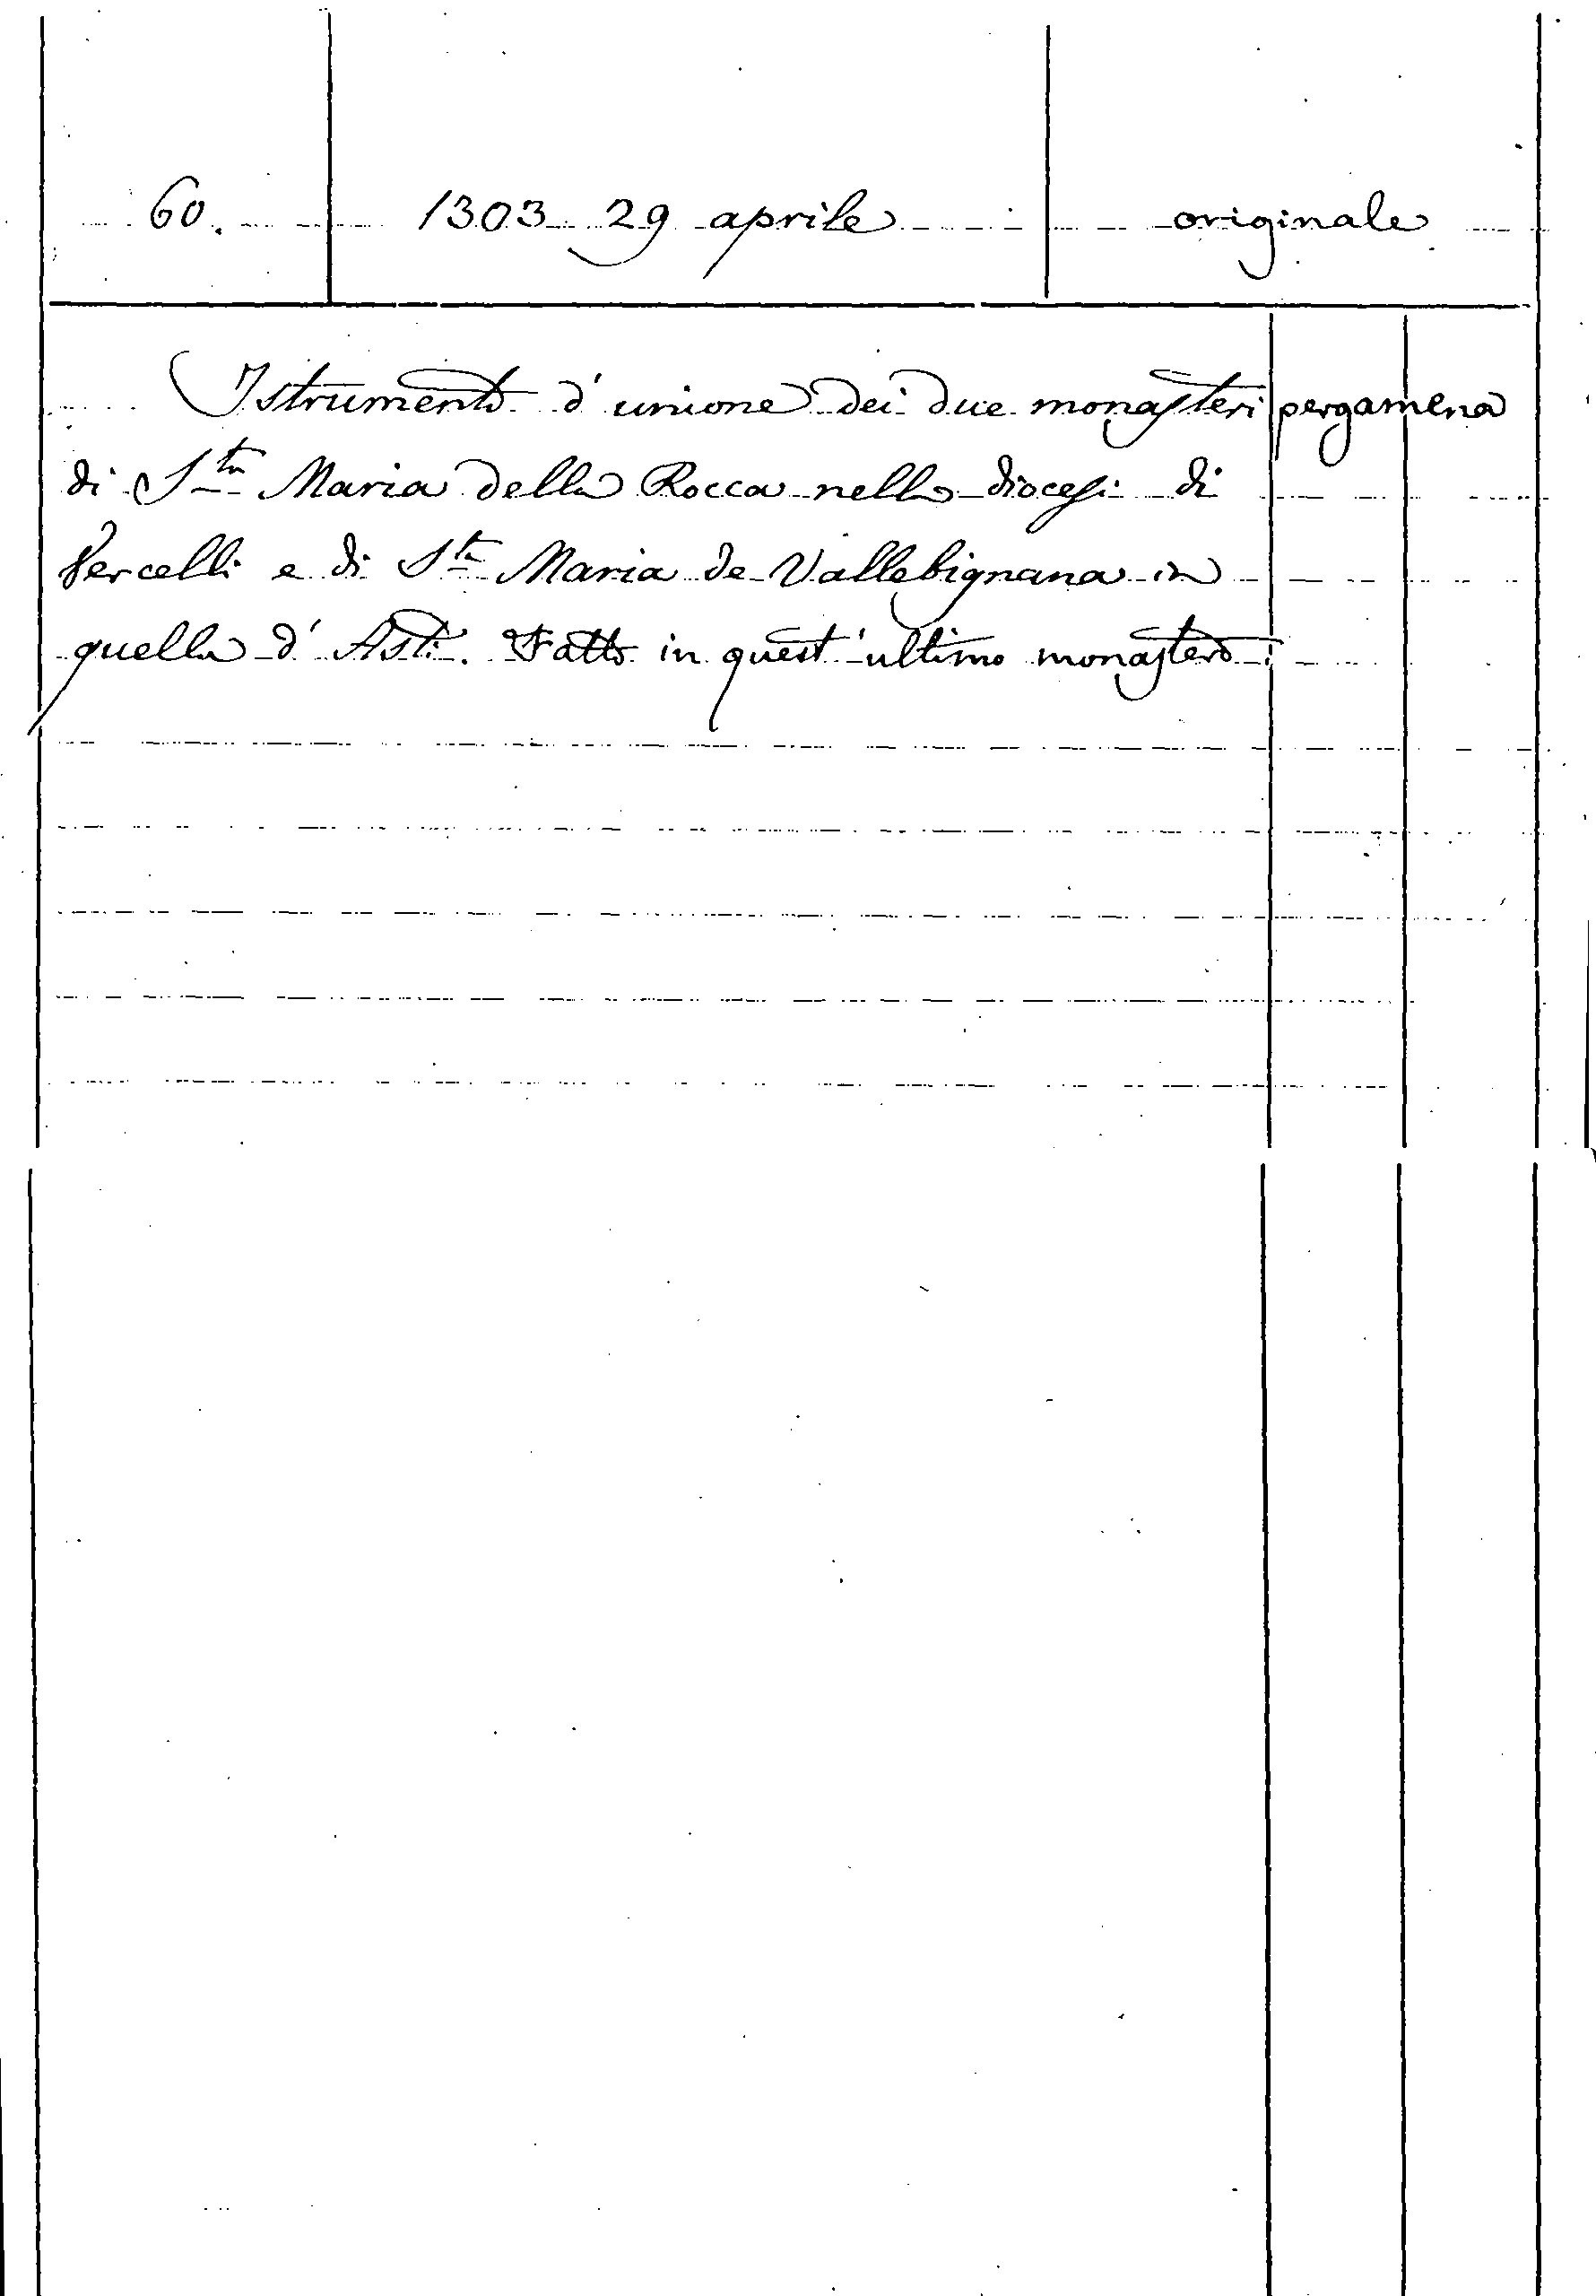 60. 1303 29 aprile originale
Istrumento d'unione dei due monasteri pergamena
di Sta Maria della Rocca nella diocesi di
Vercelli e di Sta Maria de Vallebignana in
quella d'Asti. Fatto in quest'ultimo monastero.